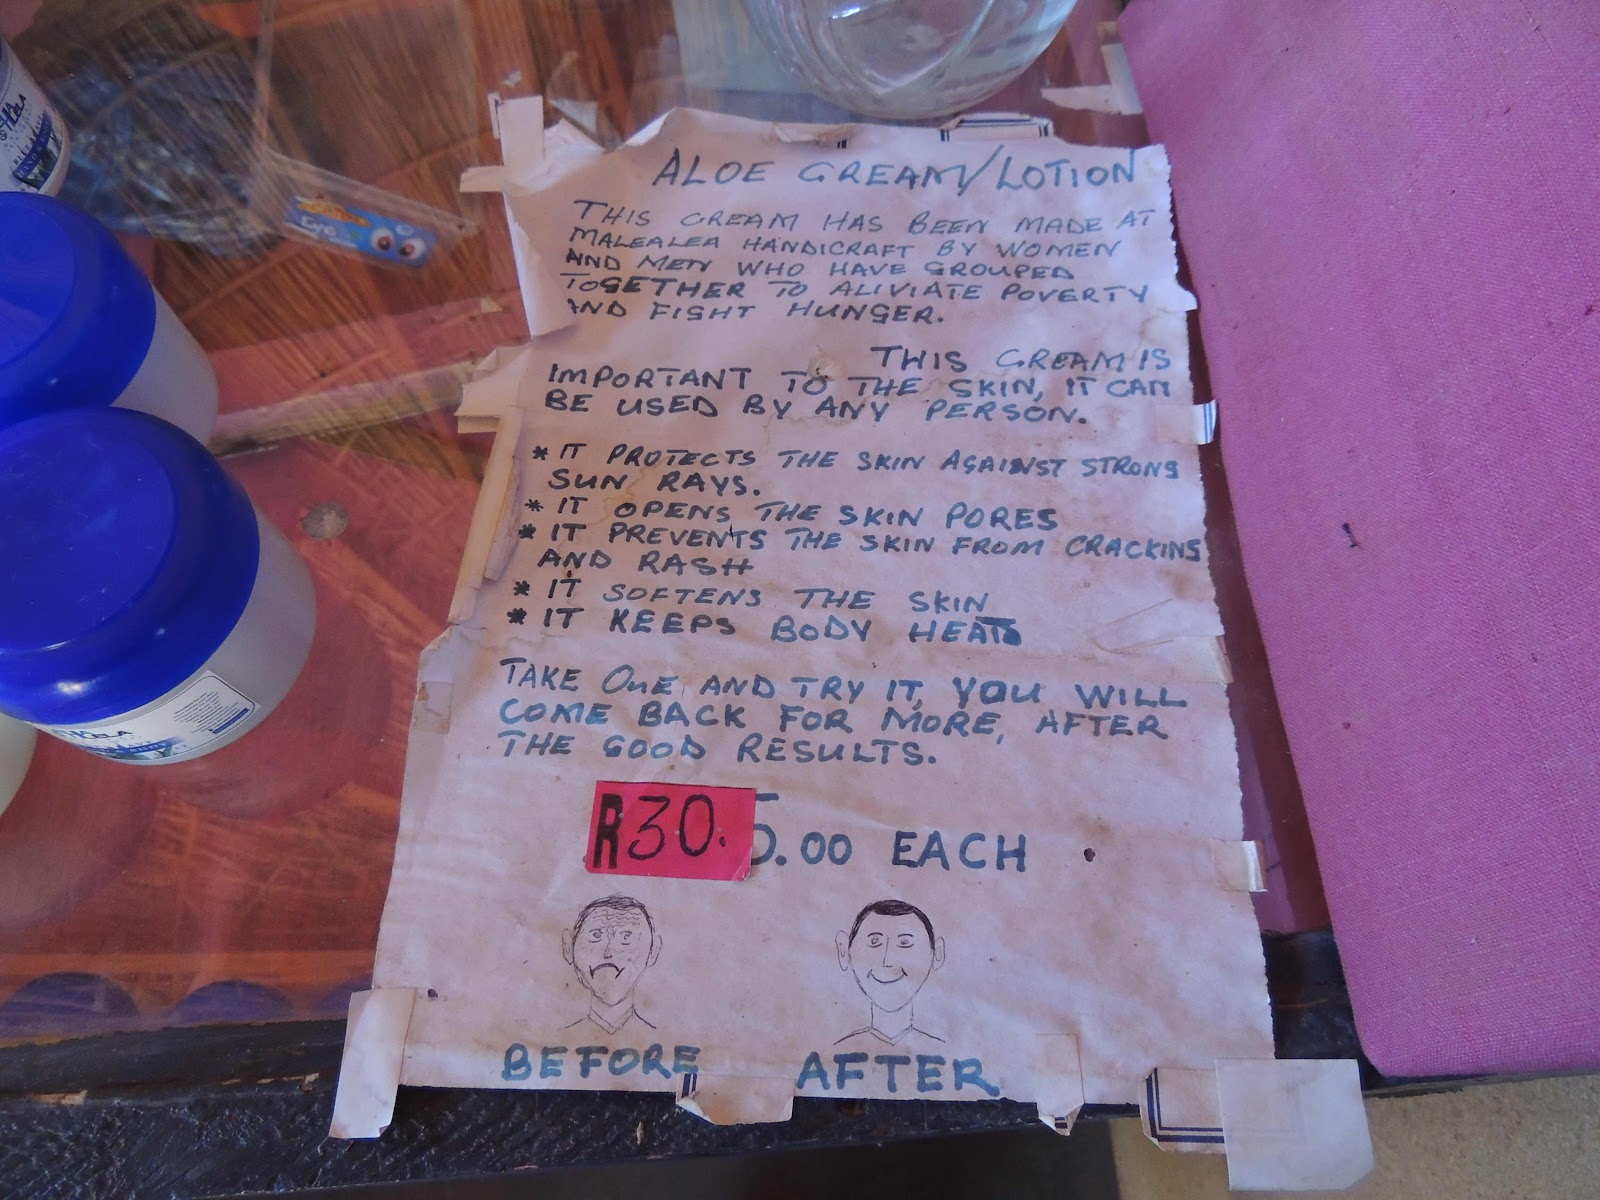 ALOE CREAM/LOTION
THIS CREAM HAS BEEN MADE AT
MALEALEA HANDICRAFT BY WOMEN
AND MEN WHO HAVE GROUPED
TOGETHER TO ALIVIATE POVERTY
AND FIGHT HUNGER.
THIS CREAM IS
IMPORTANT TO THE SKIN, IT CAN
BE USED BY ANY PERSON.
* IT PROTECTS THE SKIN AGAINST STRONG
SUN RAYS.
* IT OPENS THE SKIN PORES
* IT PREVENTS THE SKIN FROM CRACKING
AND RASH
* IT SOFTENS THE SKIN
* IT KEEPS BODY HEAT
TAKE ONE AND TRY IT, YOU WILL
COME BACK FOR MORE, AFTER
THE GOOD RESULTS.
R30. 5.00 EACH
BEFORE AFTER
Eye